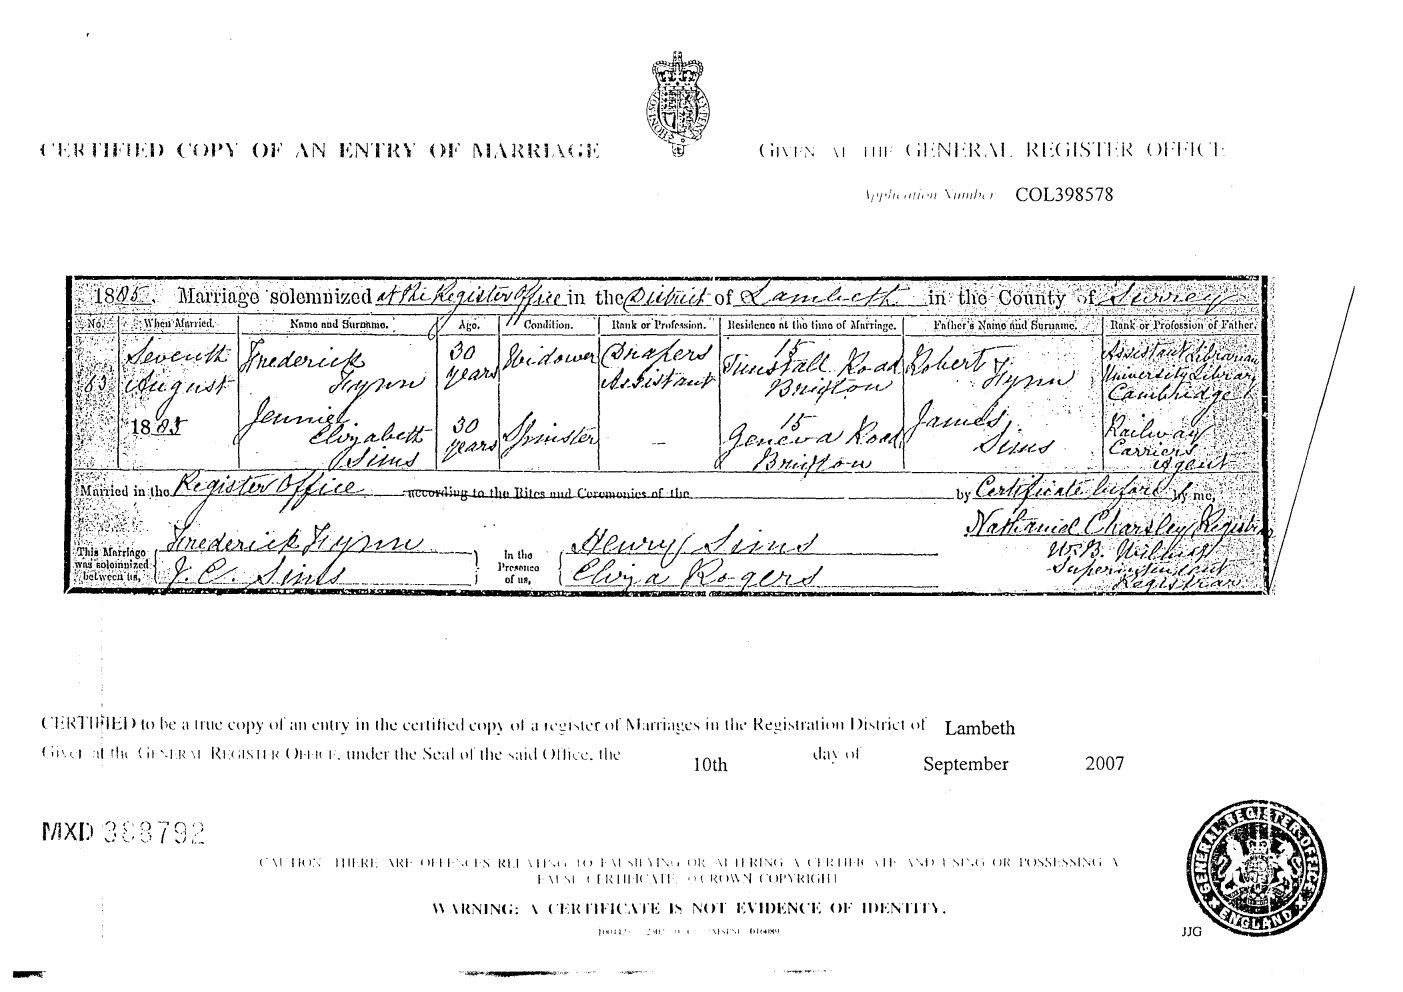 CERTIFIED COPY OF AN ENTRY OF MARRIAGE
GIVEN AT THE GENERAL REGISTER OFFICE
Application Number COL398578
1885. Marriage solemnized at the Register Office in the District of Lambeth in the County of Surrey
No. When Married. Name and Surname. Age. Condition. Rank or Profession. Residence at the time of Marriage. Father's Name and Surname. Rank or Profession of Father.
63 Seventh August 1885
Frederick Fynn 30 years Widower Drapers Assistant 15 Tunstall Road Brixton Robert Fynn Assistant Librarian University Library Cambridge
Jennie Elizabeth Sims 30 years Spinster — 15 Geneva Road Brixton James Sims Railway Carriers Agent
Married in the Register Office according to the Rites and Ceremonies of the by Certificate before by me,
This Marriage was solemnized between us,
Frederick Fynn
J. E. Sims
In the Presence of us,
Henry Sims
Eliza Rogers
Nathaniel Charsley Registrar
W. B. Superintendent Registrar
CERTIFIED to be a true copy of an entry in the certified copy of a register of Marriages in the Registration District of Lambeth
Given at the GENERAL REGISTER OFFICE, under the Seal of the said Office, the 10th day of September 2007
MXD 388792
CAUTION: THERE ARE OFFENCES RELATING TO FALSIFYING OR ALTERING A CERTIFICATE AND USING OR POSSESSING A
FALSE CERTIFICATE. ©CROWN COPYRIGHT
WARNING: A CERTIFICATE IS NOT EVIDENCE OF IDENTITY.
GENERAL REGISTER OFFICE
ENGLAND
JJG